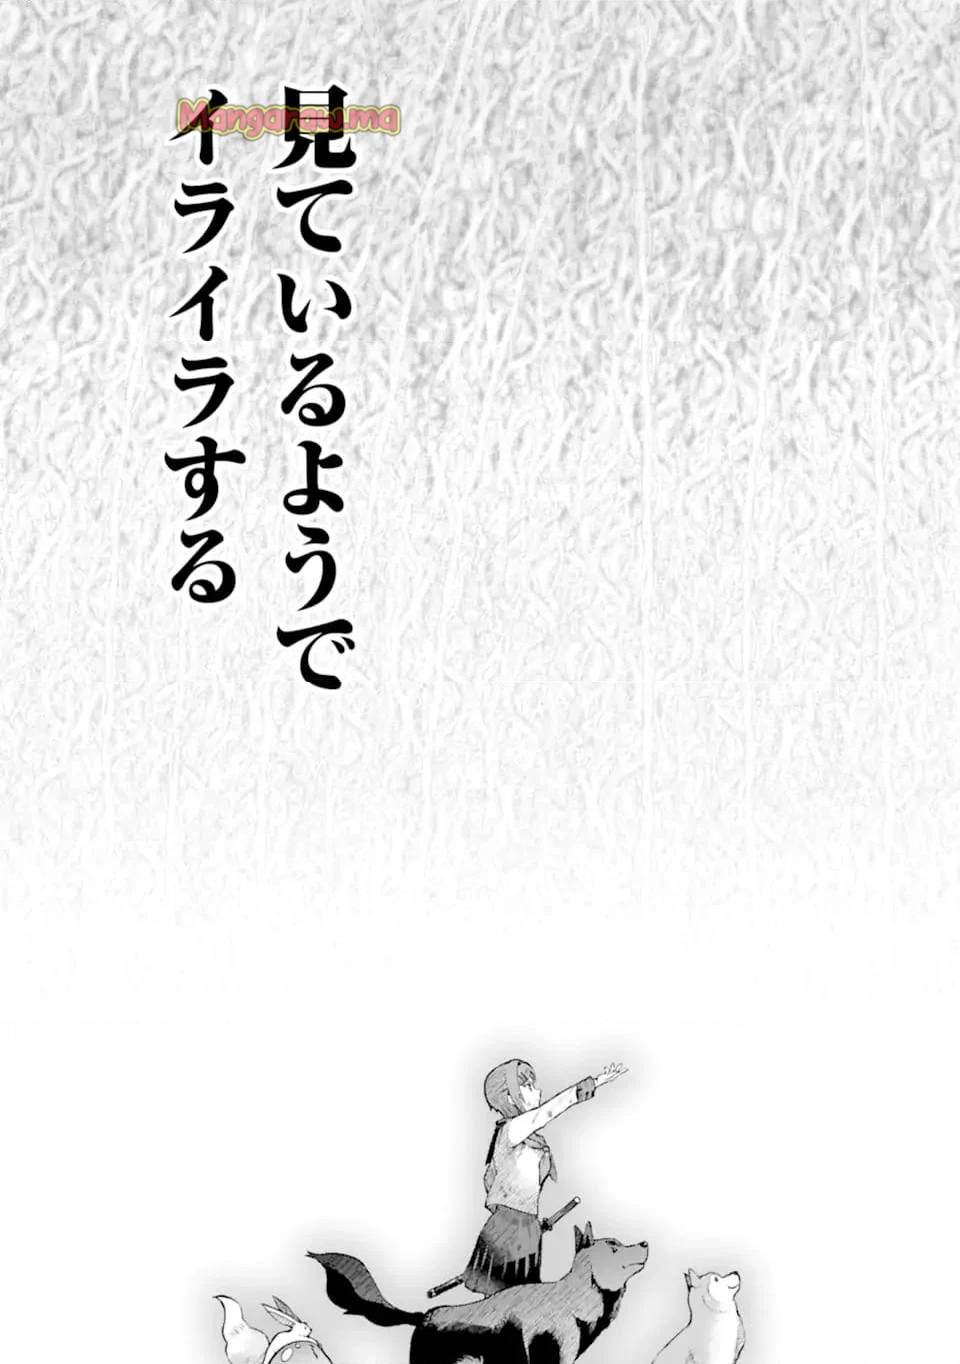 見ているようで
イライラする
Mangaraw.ma